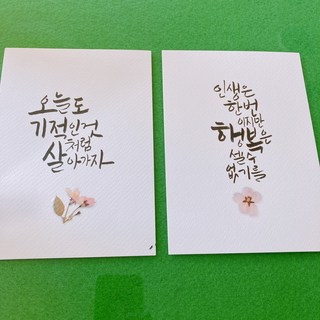 오늘도
기적인것
처럼
살아가자
인생은
한번
이지만
행복은
셀수
없기를